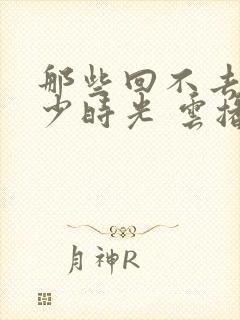 那些回不去
少時光 雲指
月神R